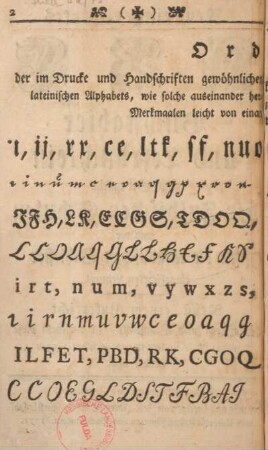 2 ( ✠ )
Ord
der im Drucke und Handschriften gewöhnlichen
lateinischen Alphabets, wie solche auseinander her
Merkmaalen leicht von einan
ı, ij, rx, ce, ltk, ſf, nuo
JFH, LK, ECGS, TDOQ,
irt, num, vywxzs,
ıirnmuvwceoaqg
ILFET, PBD, RK, CGOQ
CCOEGLDSTFBAI